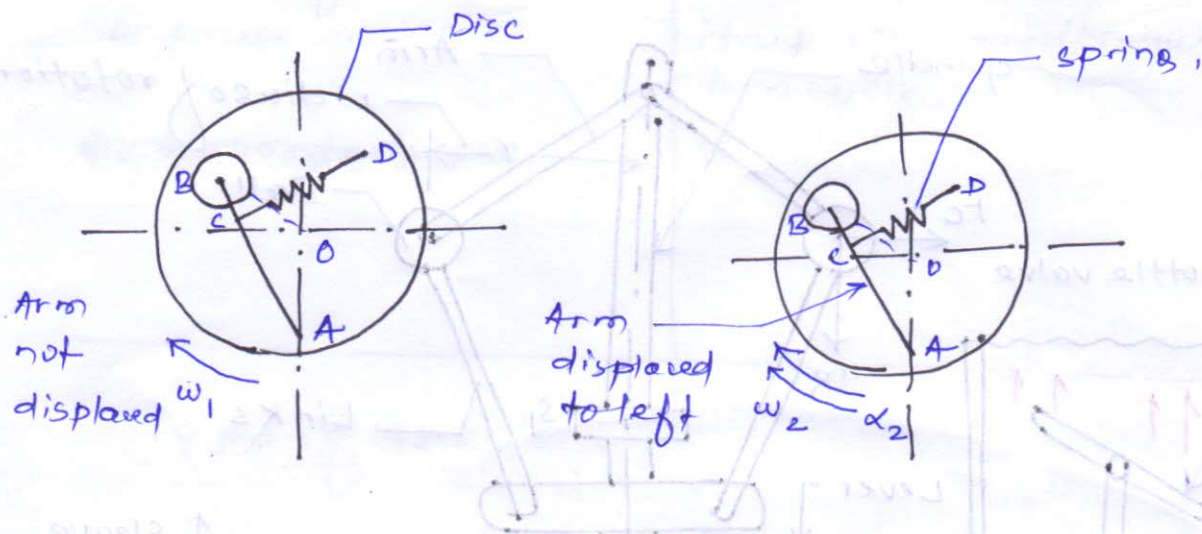 Disc
B
D
C
O
A
Arm
not
displaced
ω₁
spring,
B
D
C
O
Arm
displaced
to left
A
ω₂
α₂
Lever
Links